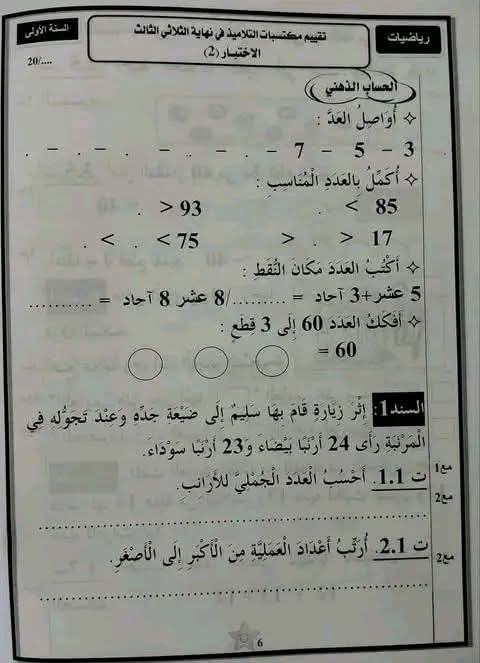 رياضيات
تقييم مكتسبات التلاميذ في نهاية الثلاثي الثالث
الاختبار (2)
السنة الأولى
20/....
الحساب الذهني
✧ أُوَاصِلُ العَدَّ :
3 – 5 – 7 – . – . – . – . – .
✧ أُكَمِّلُ بِالعَدَدِ الْمُنَاسِبِ :
85 > . . < 93
17 < . < . 75 > . > .
✧ أَكْتُبُ العَدَدَ مَكَانَ النُّقَطِ :
5 عشر+3 آحاد = ........../8 عشر 8 آحاد = ..........
✧ أُفَكِّكُ العَدَدَ 60 إِلَى 3 قِطَعٍ :
60 =
السند1: إِثْرَ زِيَارَةٍ قَامَ بِهَا سَلِيمٌ إِلَى ضَيْعَةِ جَدِّهِ وَعِنْدَ تَجَوُّلِه فِي
الْمَرْنَبَةِ رَأَى 24 أَرْنَبًا بَيْضَاءَ وَ23 أَرْنَبًا سَوْدَاءَ.
ت 1.1. أَحْسُبُ الْعَدَدَ الْجُمْلِيَّ للأَرَانِبِ.
مع1
مع2
ت 2.1. أُرَتِّبُ أَعْدَادَ العَمَلِيَّةِ مِنَ الْأَكْبَرِ إِلَى الْأَصْغَرِ.
مع2
6